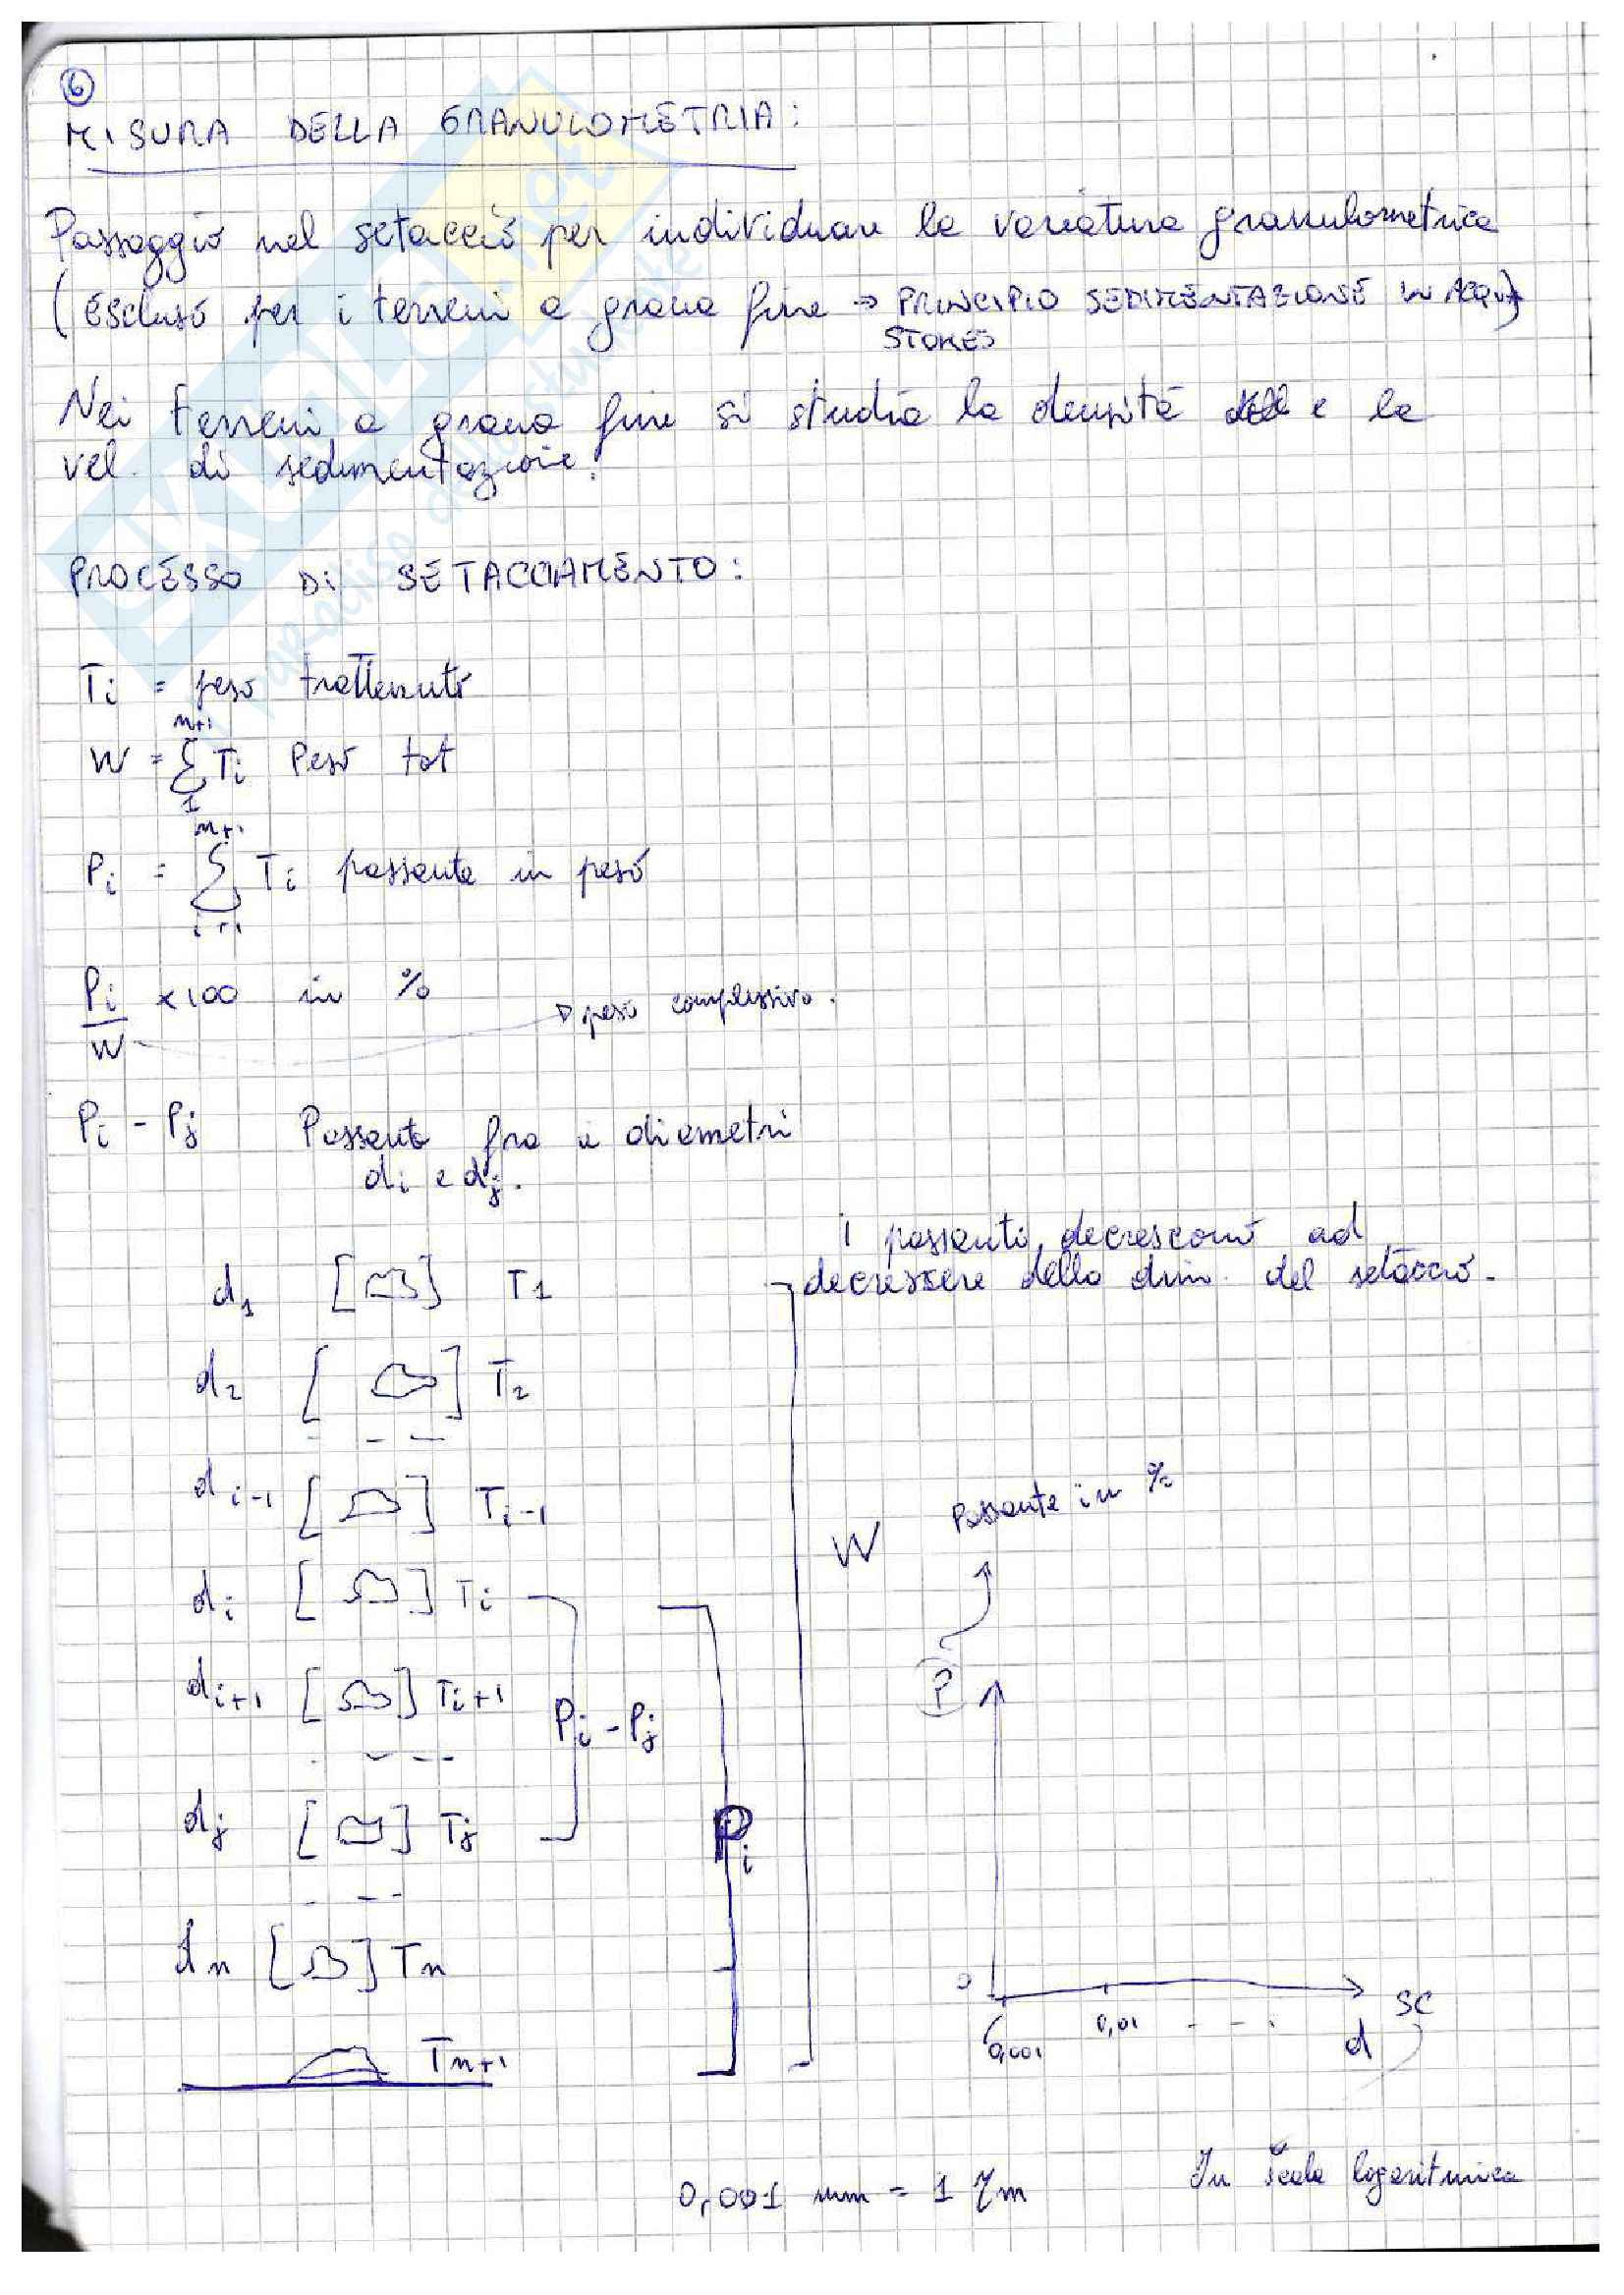 6
MISURA DELLA GRANULOMETRIA:
Passaggio nel setaccio per individuare la variatura granulometrica
(Escluso per i terreni a grana fine → PRINCIPIO SEDIMENTAZIONE IN ACQUA)
STOKES
Nei terreni a grana fine si studia la densità e la
vel. di sedimentazione.
PROCESSO DI SETACCIAMENTO:
Ti = peso trattenuto
n+1
W = Σ Ti Peso tot
1
n+1
Pi = Σ Ti passante in peso
i+1
Pi x100 in %
W → peso complessivo.
Pi - Pj Passante fra i diametri
di e dj.
I passanti decrescono ad
decrescere della dim. del setaccio.
d1 [ ] T1
d2 [ ] T2
- - -
di-1 [ ] Ti-1
W
Passante in %
di [ ] Ti
di+1 [ ] Ti+1
P
Pi - Pj
- - - -
dj [ ] Tj
Pi
- - -
dn [ ] Tn
0
SC
0,001 0,01 - - . d
Tn+1
0,001 mm = 1 μm
In scala logaritmica
SKUOLA.net
paradiso dello studente